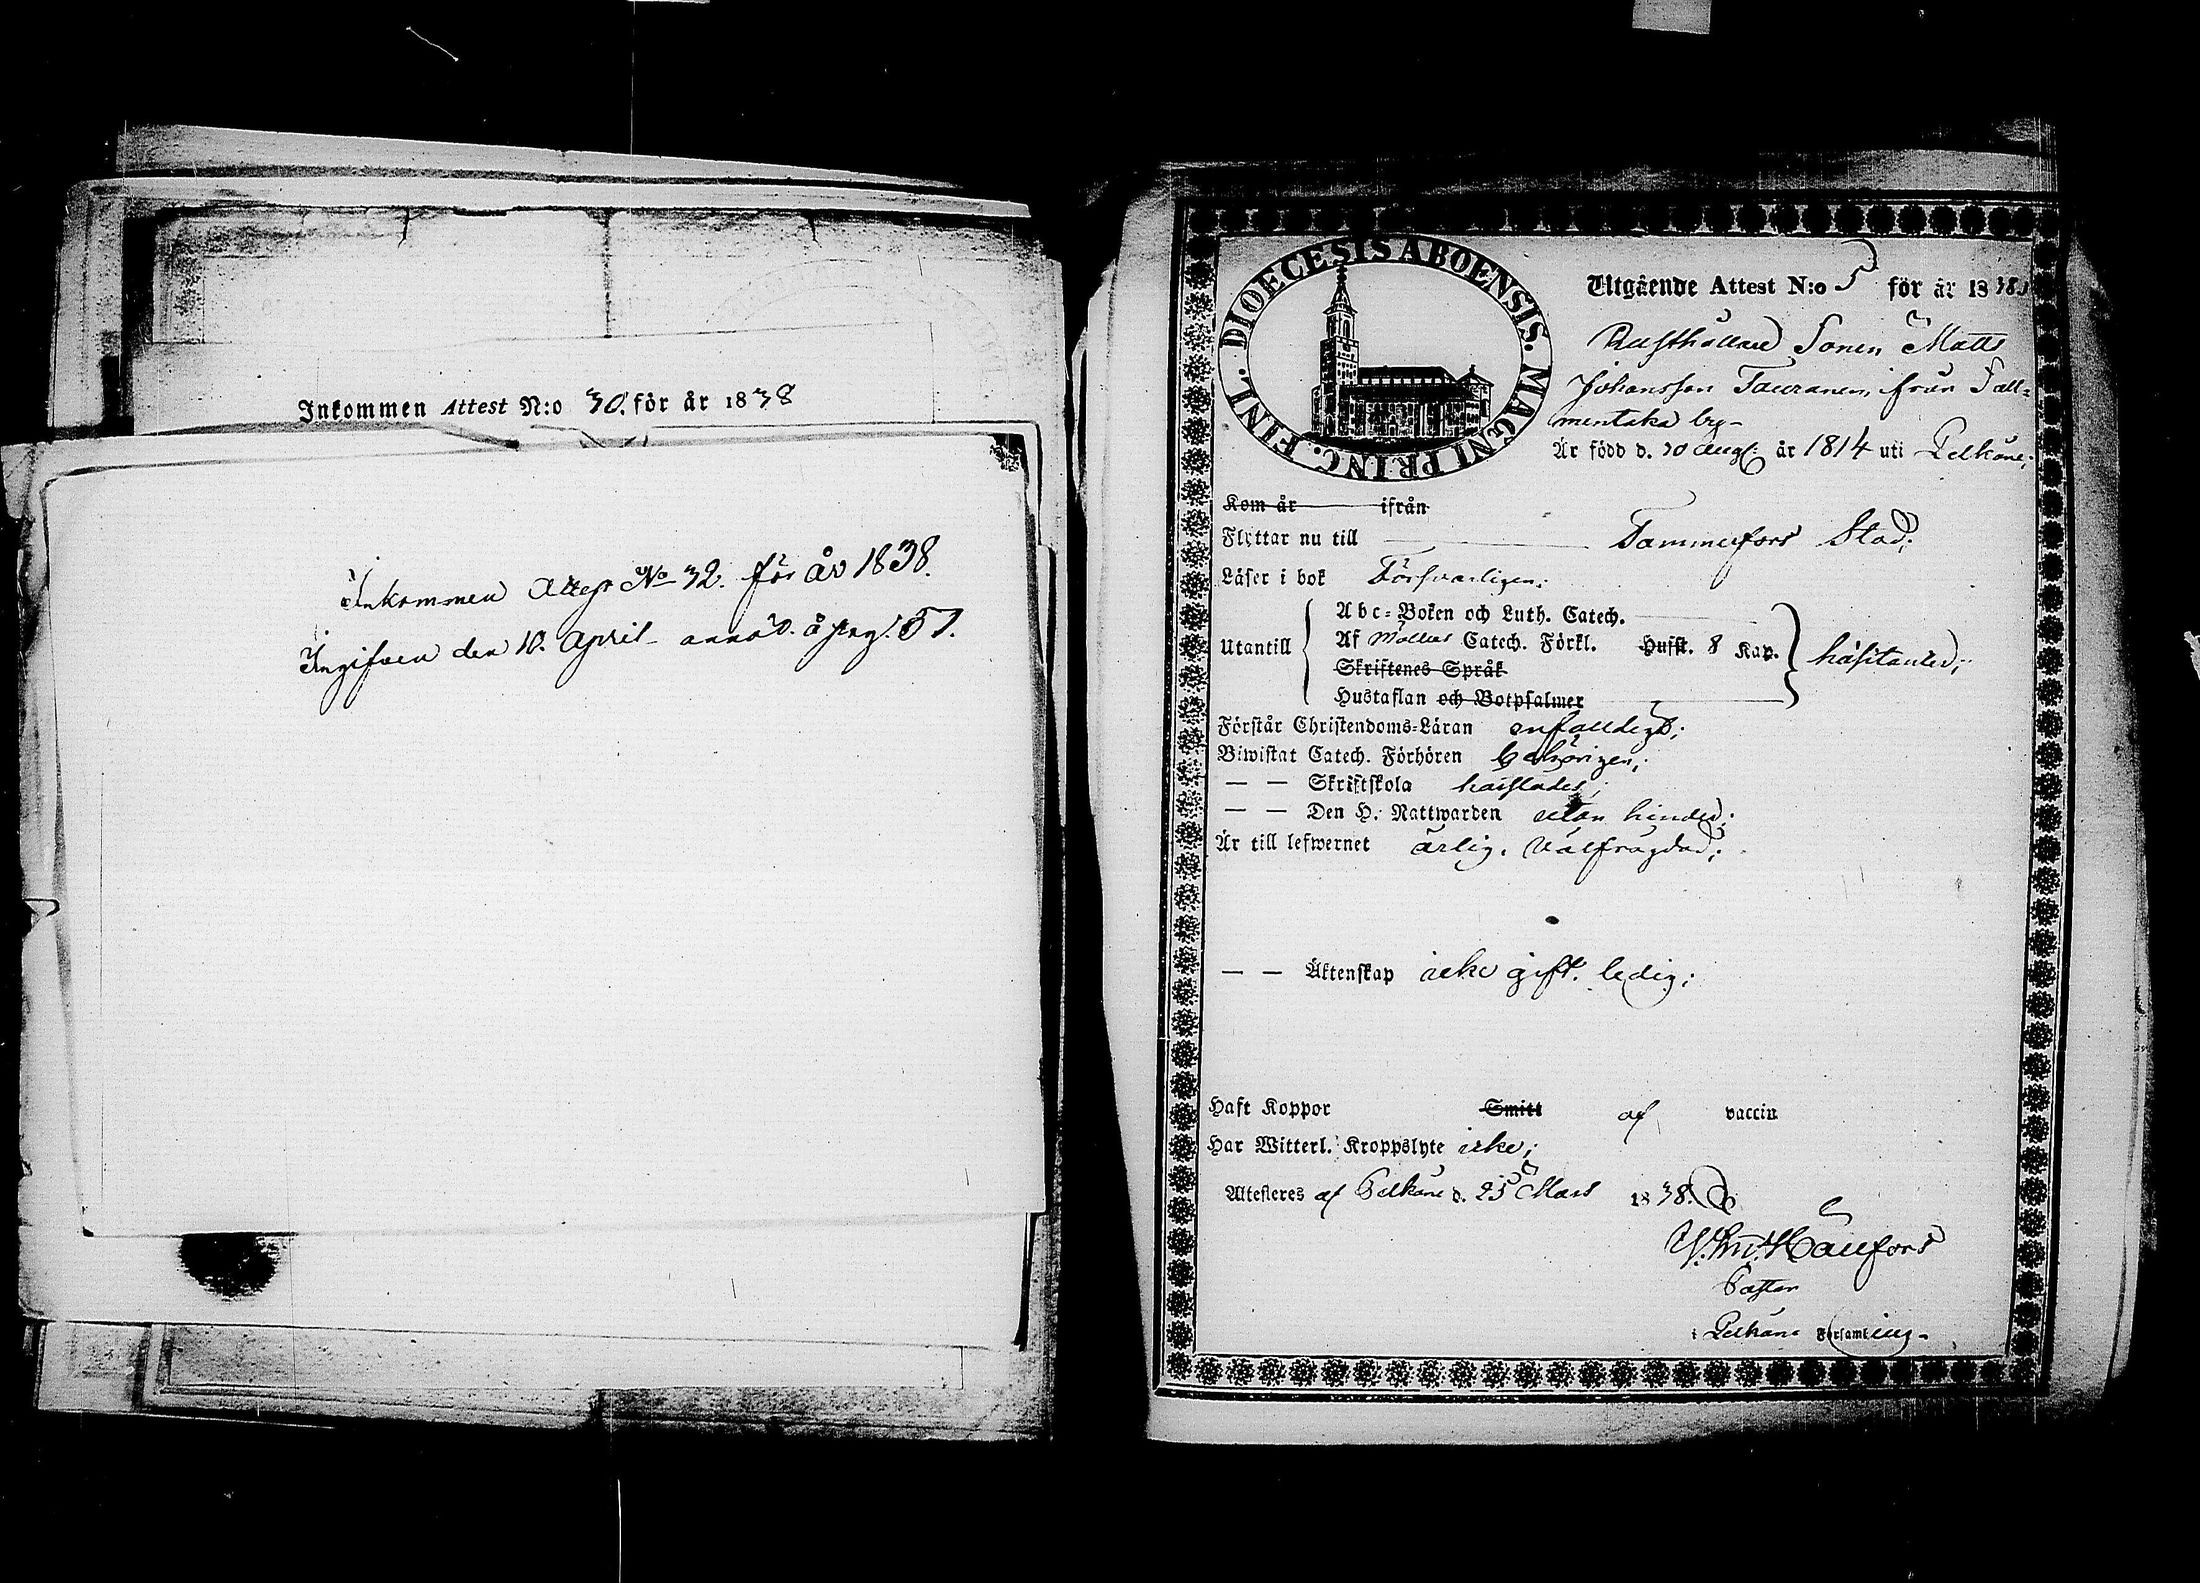 Inkommen Attest N:o 30. för år 1838
Inkommen Attest No 32. för år 1838.
Ingifven den 10. April
DIOECESIS ABOENSIS. MAGNI PRINC. FINL.
Utgående Attest N:o 5 för år 1838
Rusthållare Sonen Matts
Johansson Tauranen, från Sall-
mentaka by-
Är född d. 30 Aug. år 1814 uti Pelkäne;
Kom år ifrån
Flyttar nu till Tammerfors Stad;
Läser i bok Försvarligen;
Utantill
Abc-Boken och Luth. Catech.
Af Möllers Catech. Förkl. Husst. 8 Kap.
häsitanter;
Skriftenes Språk
Hustaflan och Botpsalmer
Förstår Christendoms-Läran enfalldigt;
Biwistat Catech. Förhören behörigen;
— — Skriftskola
— — Den H. Nattwarden utan hinder;
Är till lefwernet ärlig. Välfrägdad;
— — Äktenskap icke gift. ledig;
Haft Koppor Smitt af vaccin
Har Witterl. Kroppslyte icke;
Attesteres af Pelkäne d. 25 Mars 1838.
Pastor
i Pelkäne Församling-